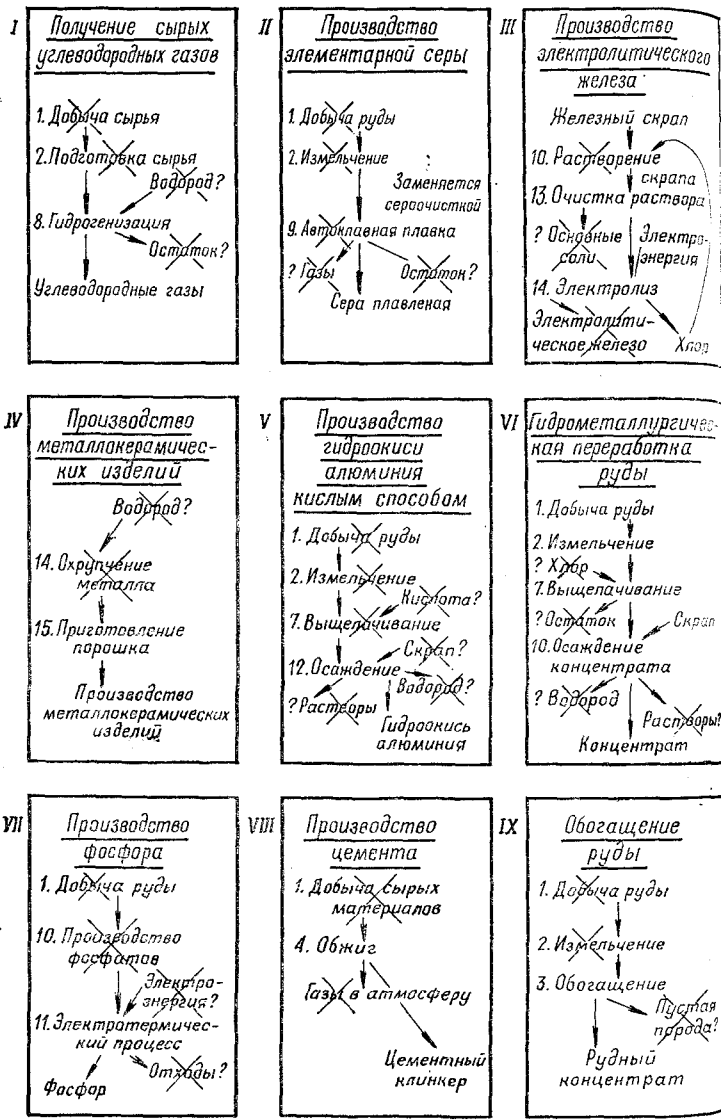 I
Получение сырых
углеводородных газов
1. Добыча сырья
2. Подготовка сырья
Водород?
8. Гидрогенизация
Остаток?
Углеводородные газы
II
Производство
элементарной серы
1. Добыча руды
2. Измельчение
Заменяется
сероочисткой
9. Автоклавная плавка
? Газы
Остаток?
Сера плавленая
III
Производство
электролитического
железа
Железный скрап
10. Растворение
скрапа
13. Очистка раствора
? Основные
соли
Электро-
энергия
14. Электролиз
Электролити-
ческое железо
Хлор
IV
Производство
металлокерамичес-
ких изделий
Водород?
14. Охрупчение
металла
15. Приготовление
порошка
Производство
металлокерамических
изделий
V
Производство
гидроокиси
алюминия
кислым способом
1. Добыча руды
2. Измельчение
Кислота?
7. Выщелачивание
Скрап?
12. Осаждение
Водород?
? Растворы
Гидроокись
алюминия
VI
Гидрометаллургичес-
кая переработка
руды
1. Добыча руды
2. Измельчение
? Хлор
7. Выщелачивание
? Остаток
Скрап
10. Осаждение
концентрата
? Водород
Растворы?
Концентрат
VII
Производство
фосфора
1. Добыча руды
10. Производство
фосфатов
Электро-
энергия?
11. Электротермичес-
кий процесс
Отходы?
Фосфор
VIII
Производство
цемента
1. Добыча сырых
материалов
4. Обжиг
Газы в атмосферу
Цементный
клинкер
IX
Обогащение
руды
1. Добыча руды
2. Измельчение
3. Обогащение
Пустая
порода?
Рудный
концентрат